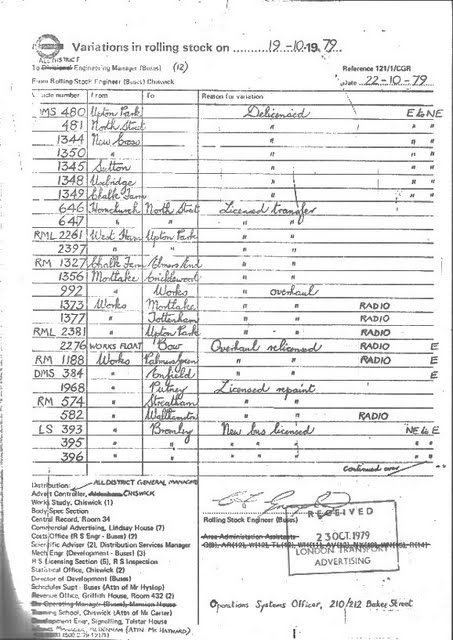 Variations in rolling stock on 19-10-1979
ALL DISTRICT
To Divisional Engineering Manager (Buses) (12)
Reference 121/1/CGR
From Rolling Stock Engineer (Buses) Chiswick
Date 22-10-79
number From To Reason for variation
DMS 480 Upton Park Delicensed E & NE
481 North Street " " "
1344 New Cross " " "
1350 " " " "
1345 Sutton " " "
1348 Uxbridge " " "
1349 Chalk Farm " " "
646 Hornchurch North Street Licensed transfer
647 " " " "
RML 2261 West Ham Upton Park " "
2397 " " " "
RM 1327 Chalk Farm Elmers End " "
1356 Mortlake Cricklewood " "
992 " Works " overhaul
1373 Works Mortlake " " RADIO
1377 " Tottenham " " RADIO
RML 2381 " Upton Park " " RADIO
2276 WORKS FLOAT Bow Overhaul relicensed RADIO E
RM 1188 Works Palmers Green " " RADIO E
DMS 384 " Enfield " " E
1968 " Putney Licensed repaint
RM 574 " Streatham " "
582 " Walthamstow " " RADIO
LS 393 " Bromley New bus licensed NE & E
395 " " " " " " "
396 " " " " " " "
continued over
Distribution: ALL DISTRICT GENERAL MANAGERS
Advert Controller, CHISWICK
Works Study, Chiswick (1)
Body Spec Section
Central Record, Room 34
Commercial Advertising, Lindsay House (7)
Costs Office (R S Engr - Buses) (7)
Scientific Adviser (2), Distribution Services Manager
Mech Engr (Development - Buses) (3)
H S Licensing Section (5), R S Inspection
Statistical Office, Chiswick (2)
Director of Development (Buses)
Schedules Supt - Buses (Attn of Mr Hyslop)
Revenue Office, Griffith House, Room 432 (2)
The Operating Manager (Buses), Mansion House
Training School, Chiswick (Attn of Mr Carter)
Development Engr, Signalling, Telstar House
Rolling Stock Engineer (Buses)
Area Administration Assistants
RECEIVED
23 OCT. 1979
LONDON TRANSPORT
ADVERTISING
Operations Systems Officer, 210/212 Baker Street